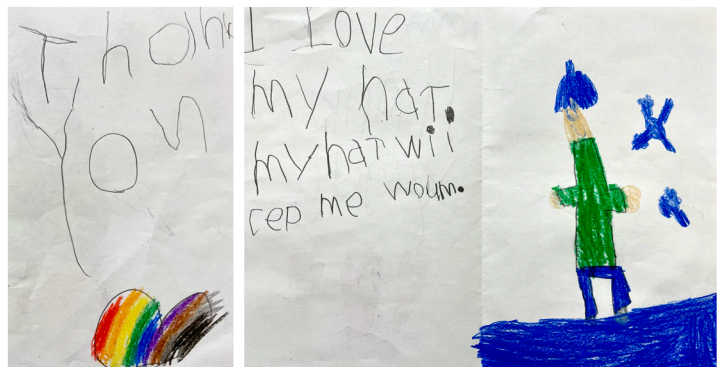 Thank
you
I Love
my hat.
my hat wil
cep me woum.